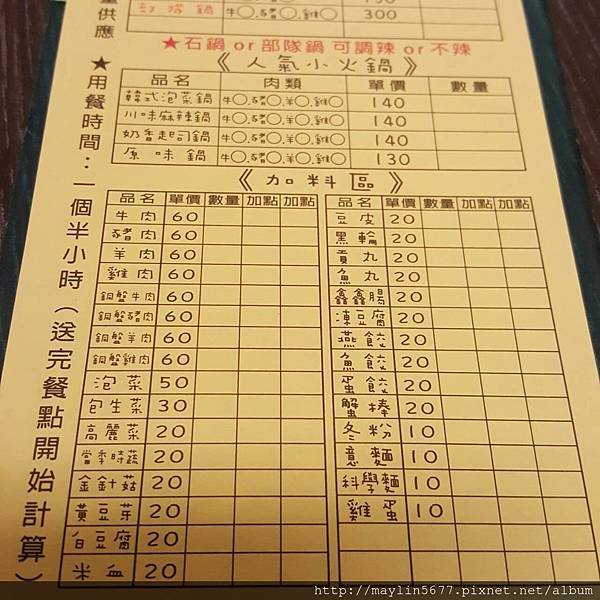 量供應
部隊鍋 牛○.豬○.羊○.雞○ 300
★石鍋 or 部隊鍋 可調辣 or 不辣
《人氣小火鍋》
品名 肉類 單價 數量
韓式泡菜鍋 牛○.豬○.羊○.雞○ 140
川味麻辣鍋 牛○.豬○.羊○.雞○ 140
奶香起司鍋 牛○.豬○.羊○.雞○ 140
原味鍋 牛○.豬○.羊○.雞○ 130
★用餐時間：一個半小時（送完餐點開始計算）
《加料區》
品名 單價 數量 加點 加點 品名 單價 數量 加點 加點
牛肉 60 豆皮 20
豬肉 60 黑輪 20
羊肉 60 貢丸 20
雞肉 60 魚丸 20
銅盤牛肉 60 鑫鑫腸 20
銅盤豬肉 60 凍豆腐 20
銅盤羊肉 60 燕餃 20
銅盤雞肉 60 魚餃 20
泡菜 50 蛋餃 20
包生菜 30 蟹棒 20
高麗菜 20 冬粉 10
當季時蔬 20 意麵 10
金針菇 20 科學麵 10
黃豆芽 20 雞蛋 10
白豆腐 20
米血 20
http://maylin5677.pixnet.net/album